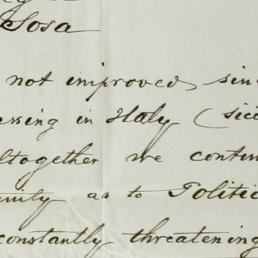 Sosa
not improved, sin
essing in Italy (sic
altogether we contin
as to Politic
constantly threatening